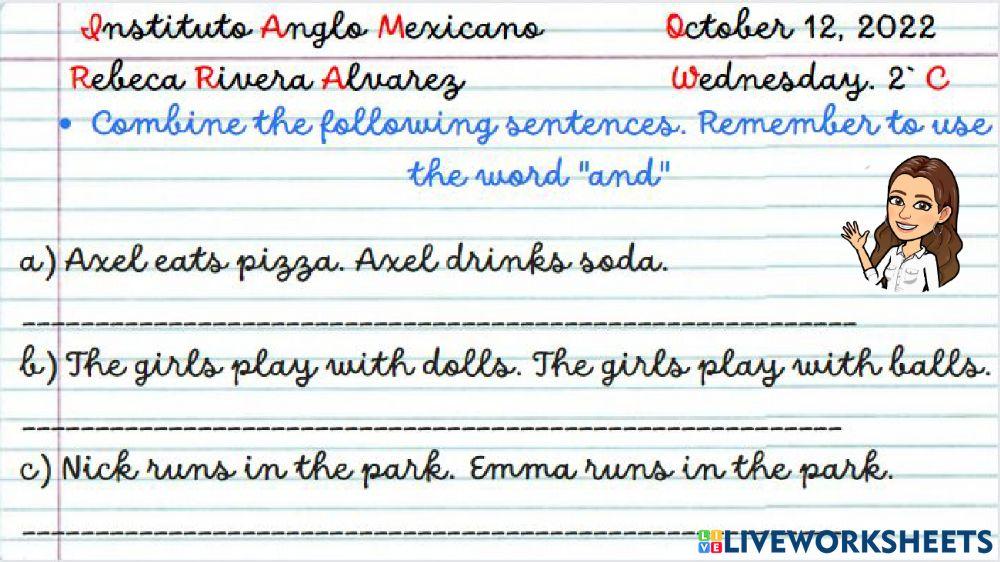 Instituto Anglo Mexicano October 12, 2022
Rebeca Rivera Alvarez Wednesday. 2` C
• Combine the following sentences. Remember to use
the word "and"
a) Axel eats pizza. Axel drinks soda.
b) The girls play with dolls. The girls play with balls.
c) Nick runs in the park. Emma runs in the park.
LIVE LIVEWORKSHEETS